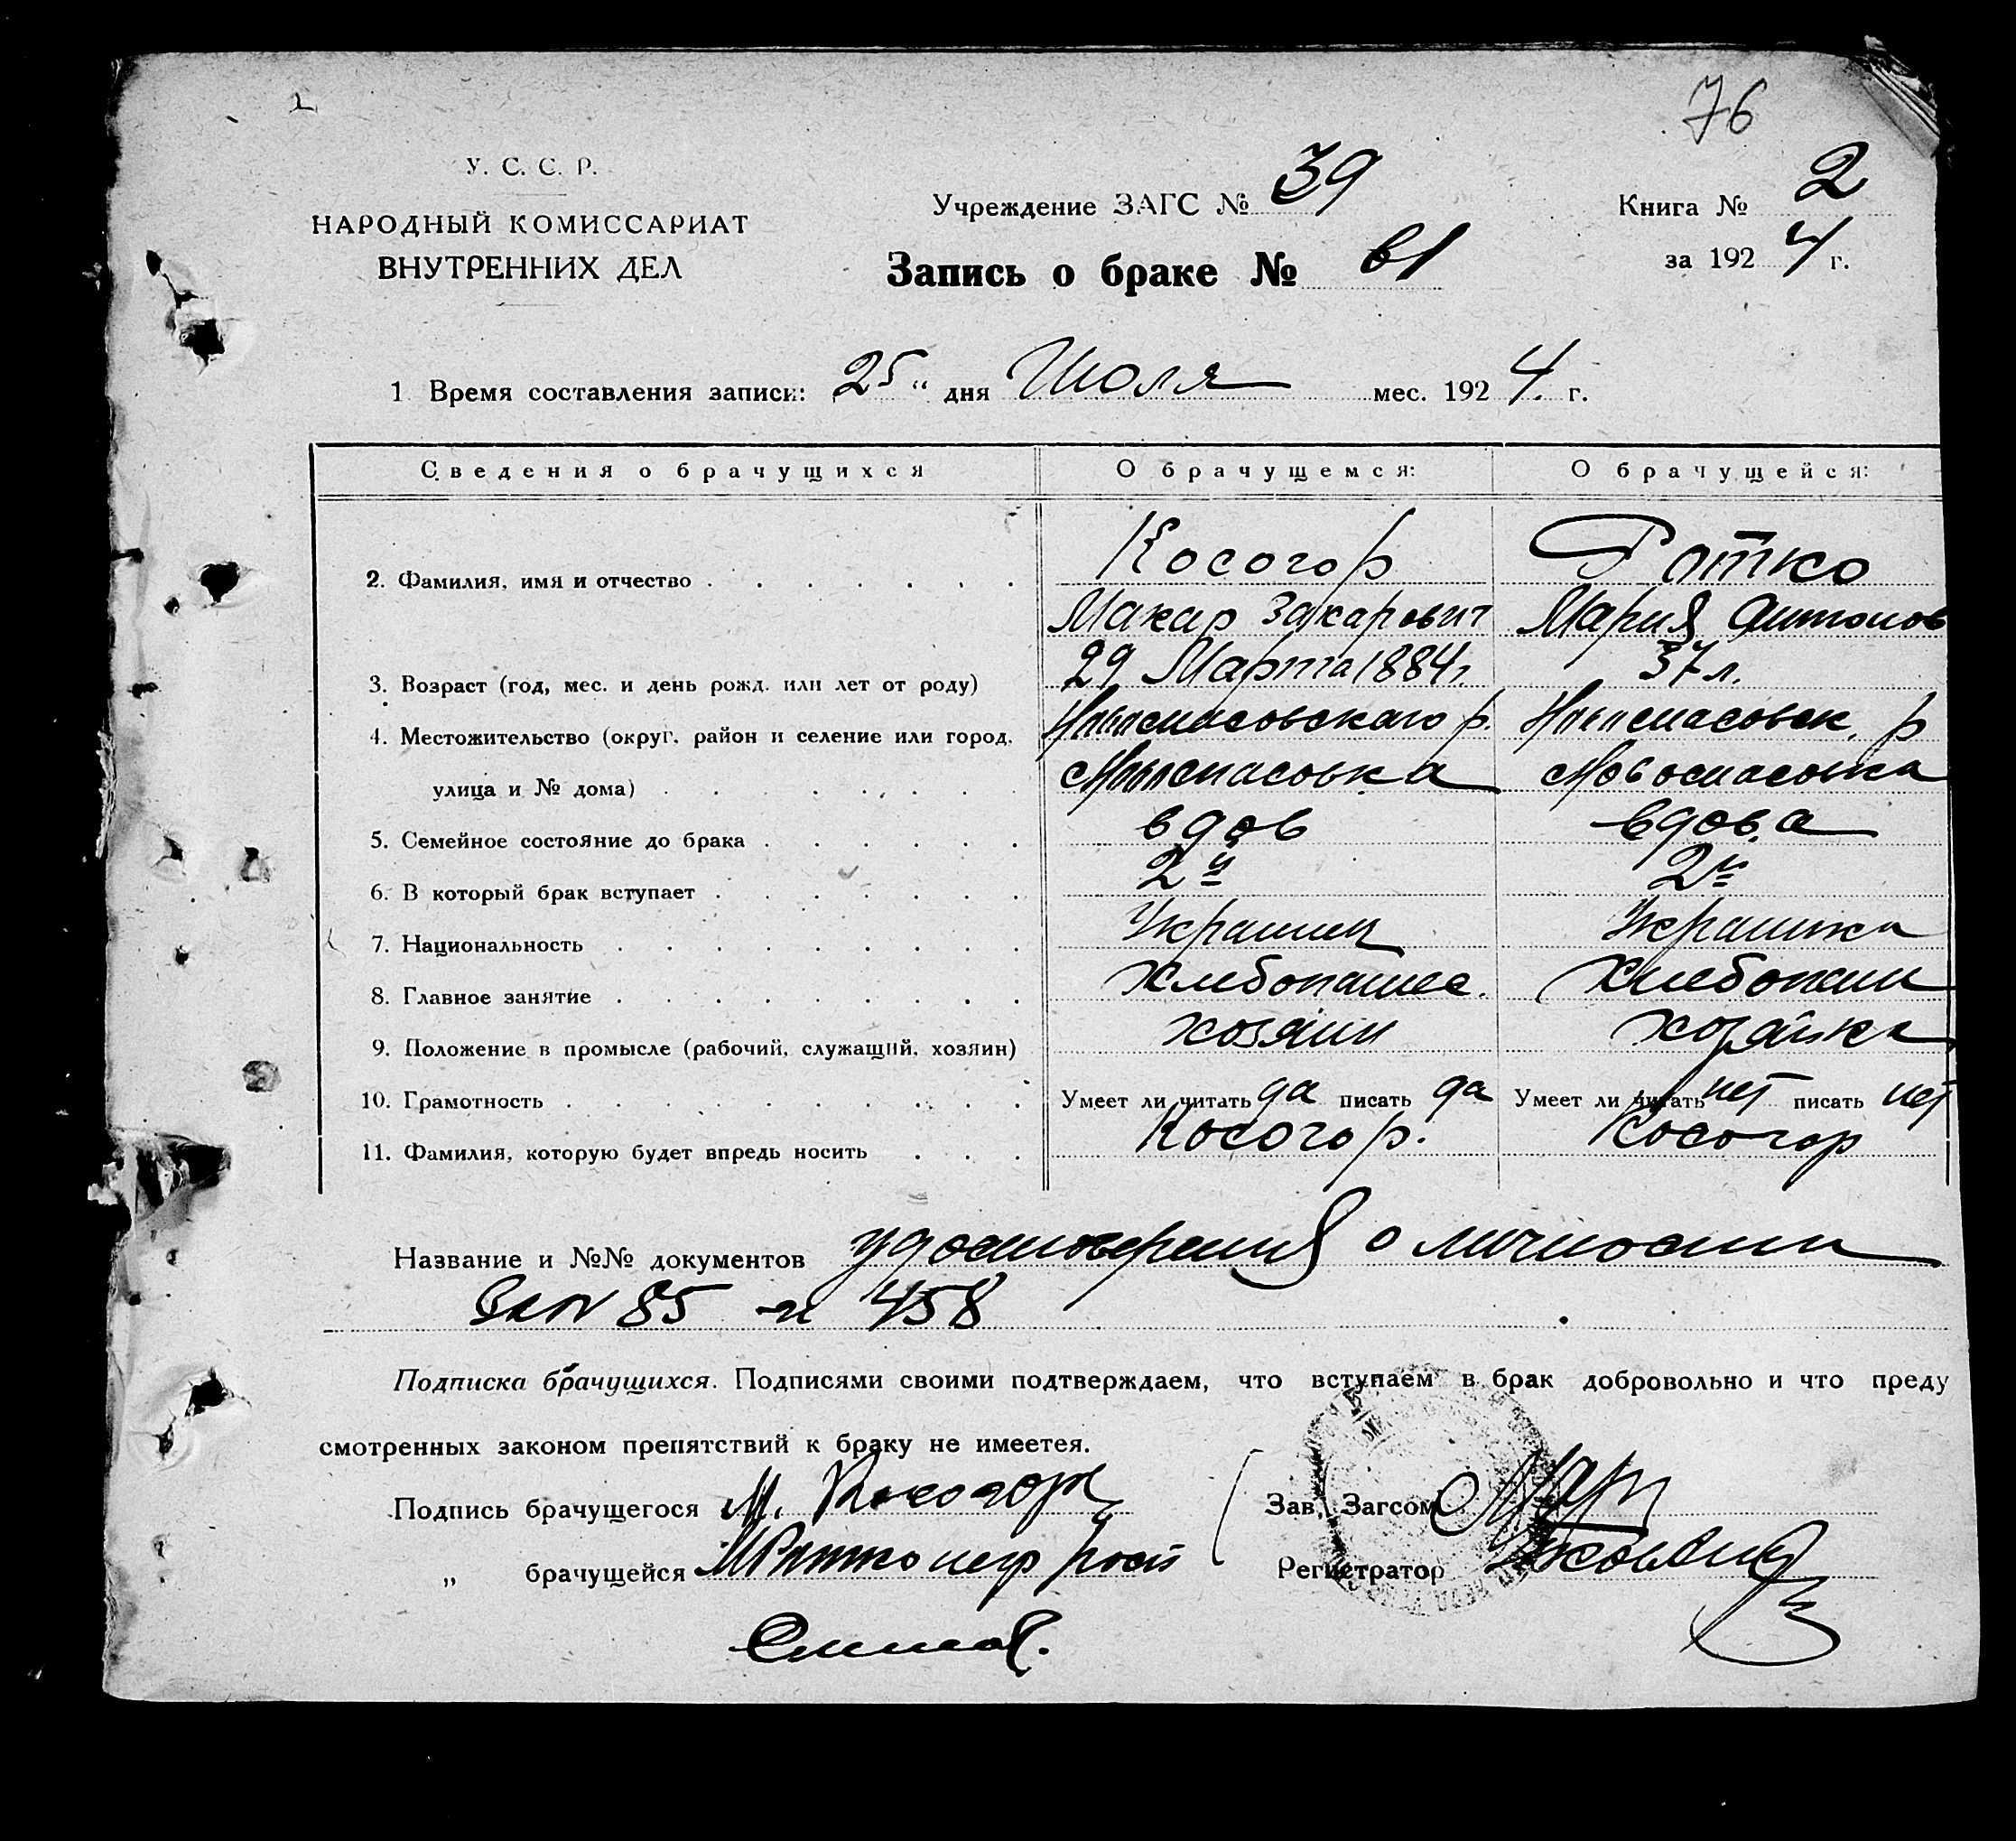 76
У. С. С. Р.
НАРОДНЫЙ КОМИССАРИАТ
ВНУТРЕННИХ ДЕЛ
Учреждение ЗАГС № 39
Книга № 2
за 1924 г.
Запись о браке № 61
1 Время составления записи: 25 " дня Июля мес. 1924. г.
Сведения о брачущихся О брачущемся: О брачущейся:
2. Фамилия, имя и отчество Косогор Ротко
Макар Захарович Мария Антонов
3. Возраст (год, мес. и день рожд. или лет от роду) 29 Марта 1884 г. 37 л.
4. Местожительство (округ, район и селение или город, р. р
улица и № дома) Новоспасовка
5. Семейное состояние до брака вдов вдова
6. В который брак вступает 2й 2й
7. Национальность Украинец Украинка
8. Главное занятие Хлебопашес.
9. Положение в промысле (рабочий, служащий, хозяин) хозяин хозяйка
10. Грамотность Умеет ли читать да писать да Умеет ли читать нет писать нет
11. Фамилия, которую будет впредь носить Косогор. Косогор
Название и №№ документов удостоверения о личности
85 и 458
Подписка брачущихся. Подписями своими подтверждаем, что вступаем в брак добровольно и что преду
смотренных законом препятствий к браку не имеетея.
Подпись брачущегося М. Косогор Зав. Загсом
„ брачущейся МРотко Регистратор